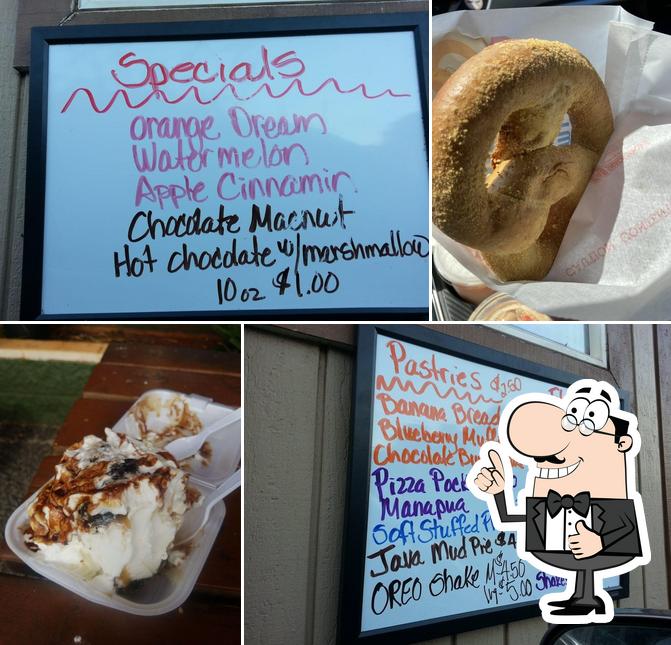 Specials
Orange Dream
Watermelon
Apple Cinnamin
Chocolate Macnut
Hot chocolate w/marshmallow
10 oz $1.00
Pastries $2.50
Banana Bread
Blueberry
Chocolate
Pizza
Manapua
Soft Stuffed
Java Mud Pie
OREO Shake M $4.50
5.00